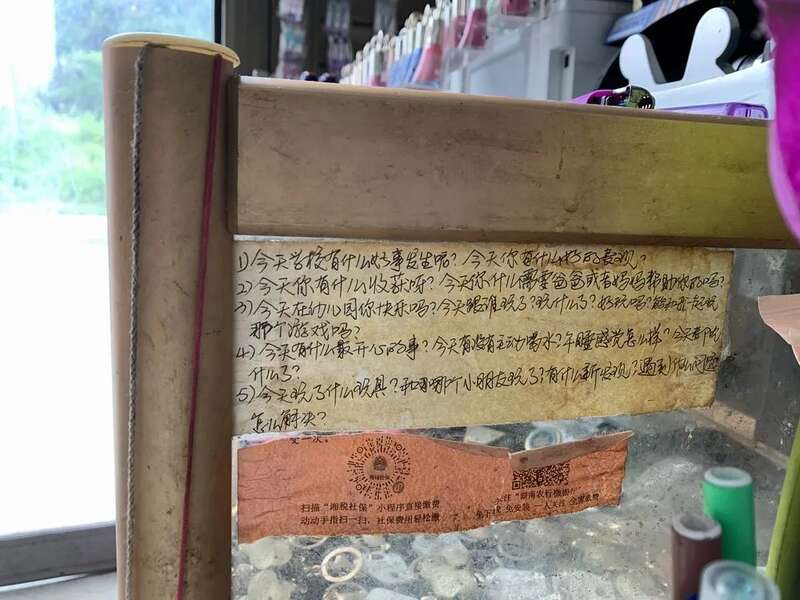 1) 今天学校有什么好事发生呢？今天你有什么好的表现？
2) 今天你有什么收获呀？今天你什么需要爸爸或者妈妈帮助你的吗？
3) 今天在幼儿园你快乐吗？今天跟谁玩了？玩什么了？好玩吗？能和我一起玩
那个游戏吗？
4) 今天有什么最开心的事？今天有没有主动喝水？午睡感觉怎么样？今天都吃
什么了？
5) 今天玩了什么玩具？和哪个小朋友玩了？有什么新发现？遇到什么问题
怎么解决？
扫描“湘税社保”小程序直接缴费
动动手指扫一扫，社保费用轻松缴
关注“湖南农行微银
免下载 免安装 一人关注 全家缴费